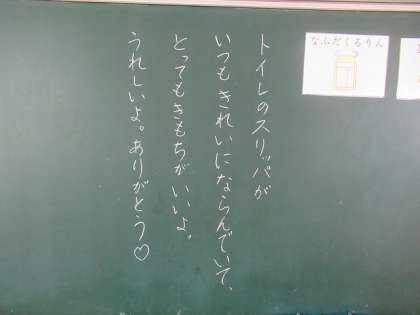 トイレのスリッパが
いつもきれいにならんでいて、
とってもきもちがいいよ。
うれしいよ。ありがとう♡
なふだくるりん